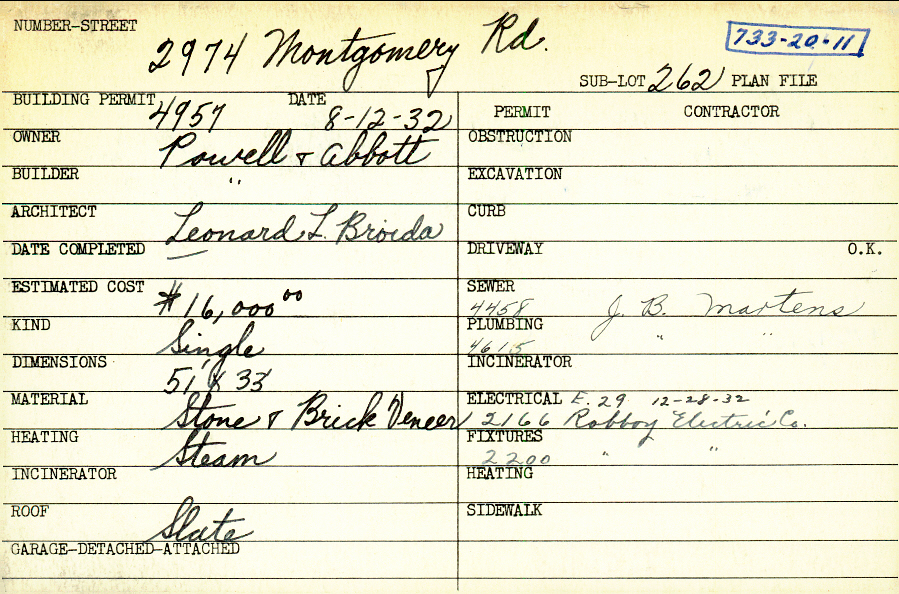 NUMBER-STREET
2974 Montgomery Rd.
733-20-11
SUB-LOT 262 PLAN FILE
BUILDING PERMIT 4957 DATE 8-12-32
PERMIT CONTRACTOR
OWNER Powell & Abbott
OBSTRUCTION
BUILDER "
EXCAVATION
ARCHITECT Leonard L. Broida
CURB
DATE COMPLETED —
DRIVEWAY O.K.
ESTIMATED COST $16,000 00
SEWER
4458 J. B. Martens
KIND Single
PLUMBING
4615 " "
DIMENSIONS 51 X 33
INCINERATOR
MATERIAL Stone & Brick Veneer
ELECTRICAL E. 29 12-28-32
2166 Robboy Electric Co.
HEATING Steam
FIXTURES
2200 " "
INCINERATOR
HEATING
ROOF Slate
SIDEWALK
GARAGE-DETACHED-ATTACHED